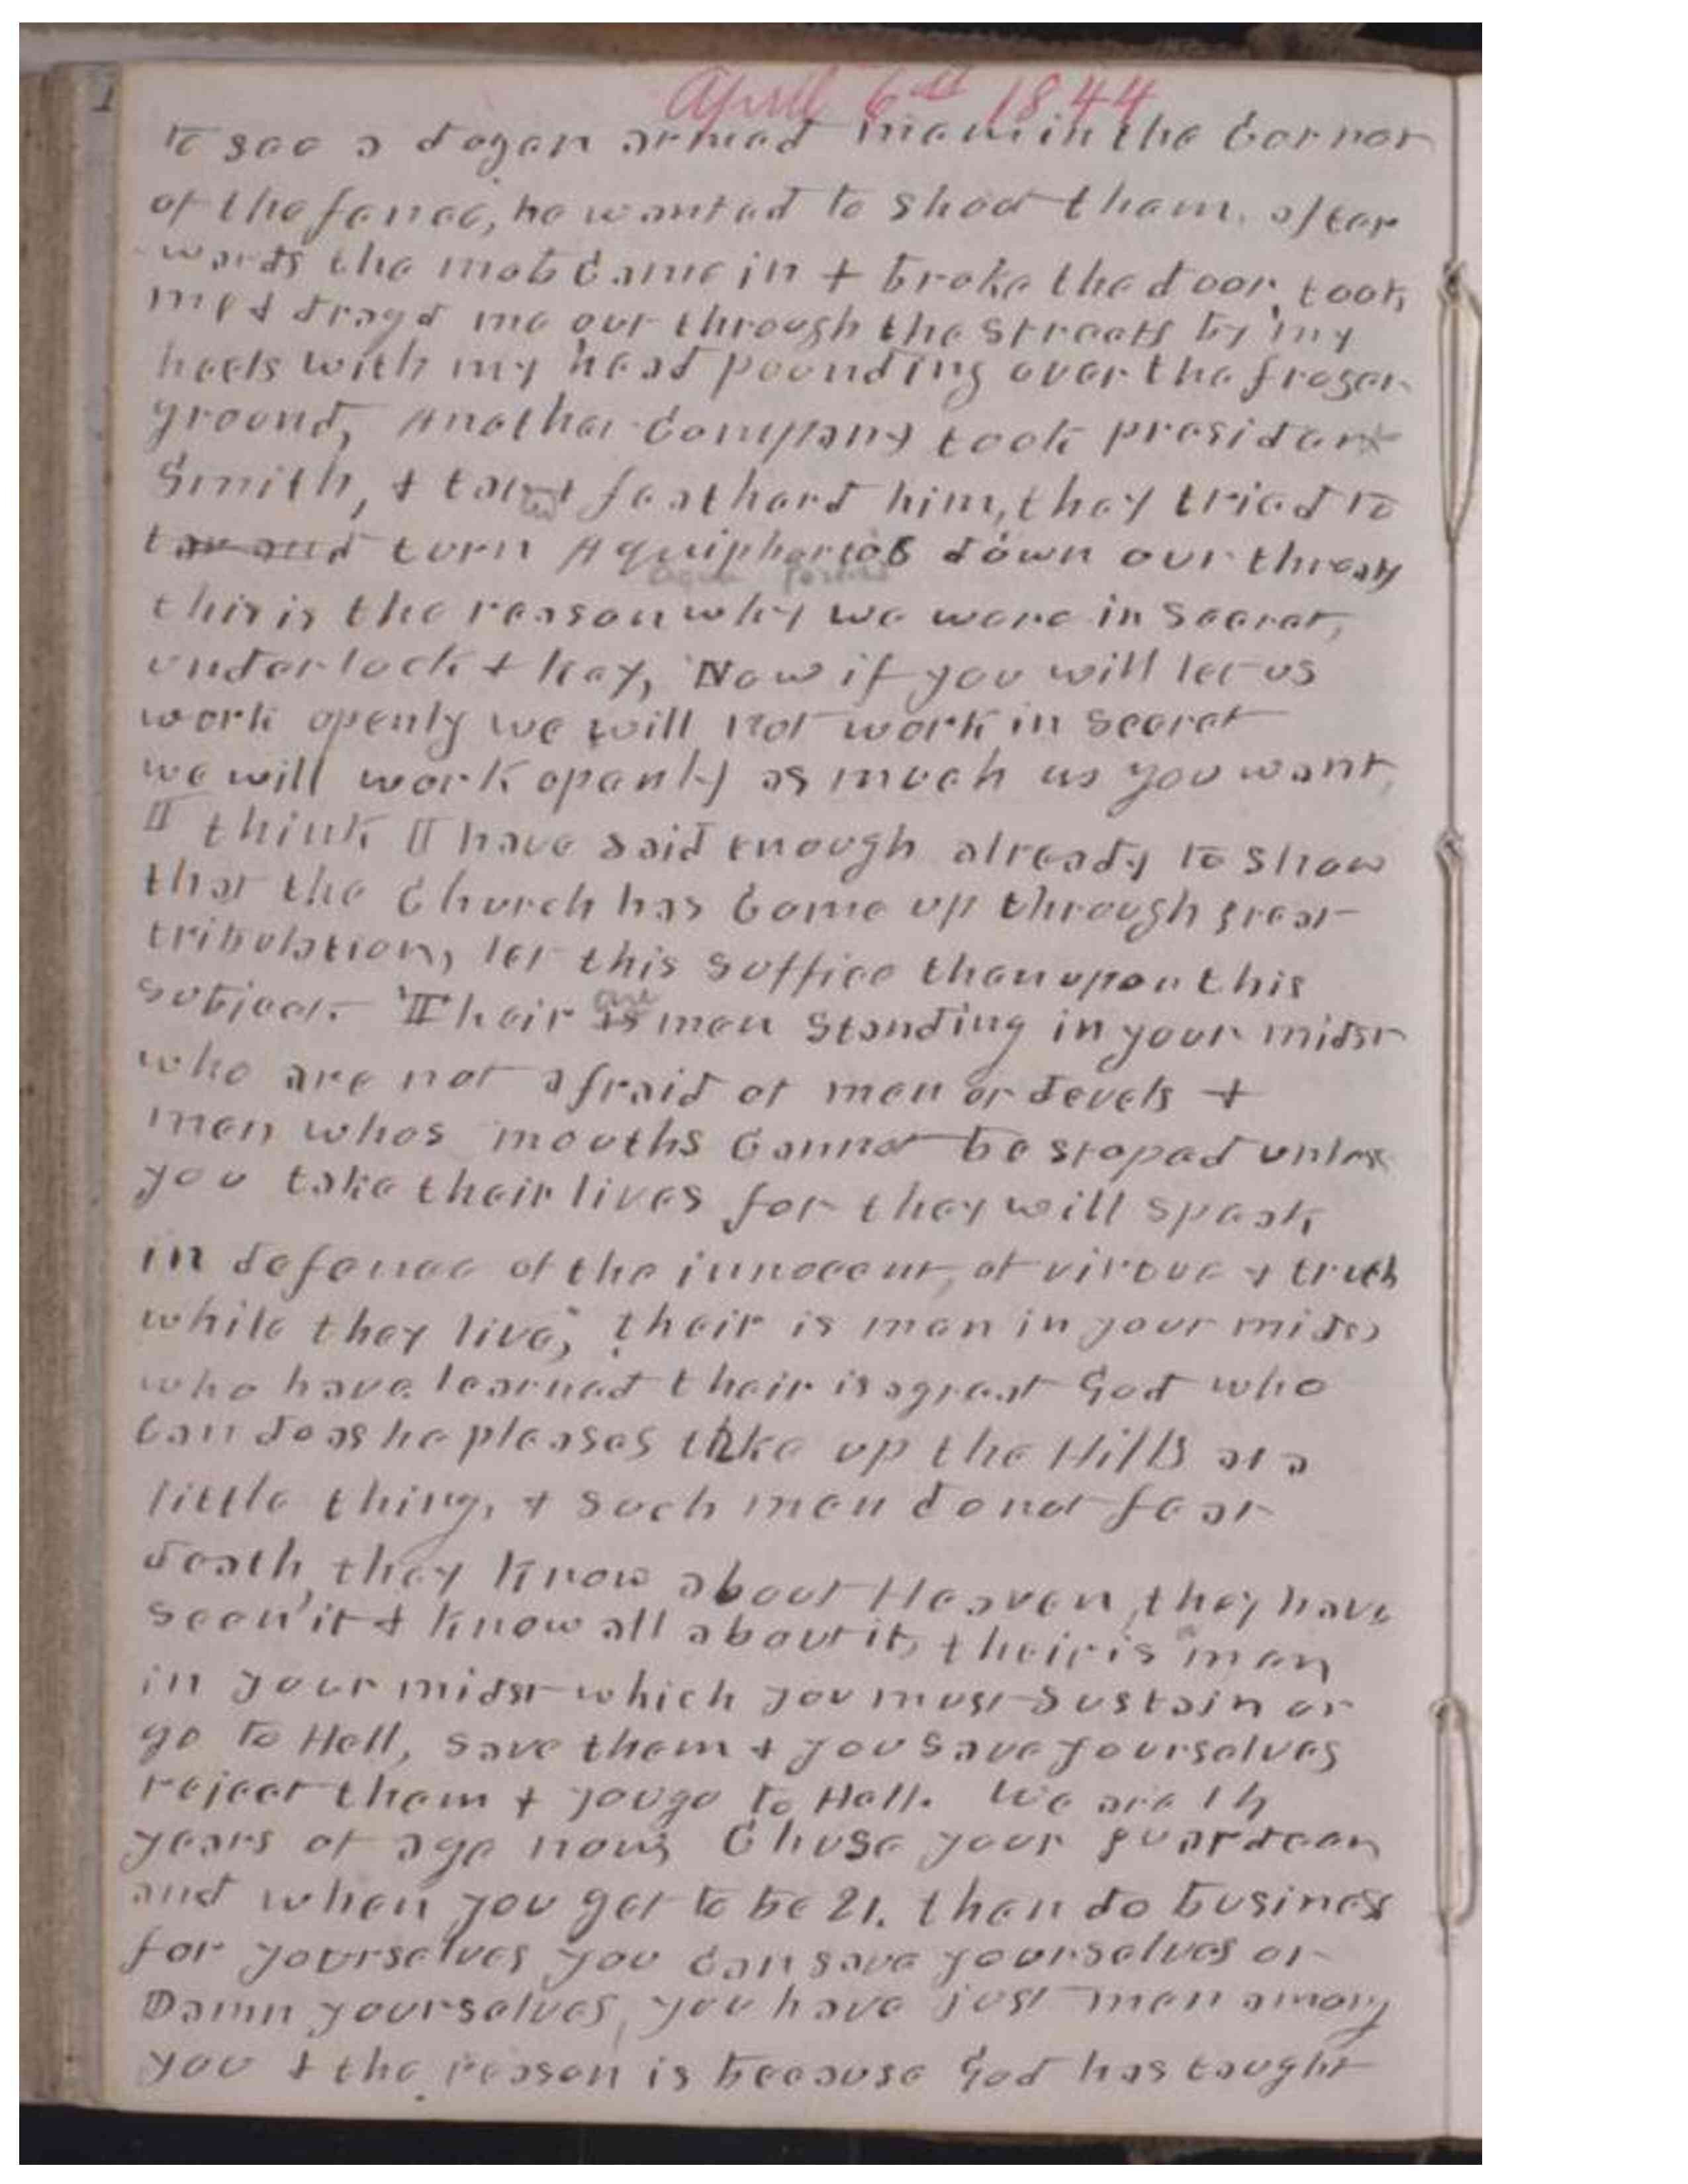 April 6th 1844
to see a dozen armed men in the Corner
of the fence, he wanted to shoot them. after
wards the mob Came in + broke the door, took
me + dragd me out through the streets by my
heels with my head pounding over the frozen
ground, Another Company took president
Smith, + tared + featherd him, they tried to
tar and turn Aquiphortos down our throats
aqua fortis
this is the reason why we were in secret,
under lock + key, Now if you will let us
work openly we will not work in secret
we will work openly as much as you want,
I think I have said enough already to show
that the Church has Come up through great
tribulation, let this suffice then upon this
subject. Their is are men standing in your midst
who are not afraid of men or devels +
men whos mouths Cannot be stoped unless
you take their lives for they will speak
in defence of the innocent, of virtue + truth
while they live, their is men in your midst
who have learned their is a great God who
Can do as he pleases take up the Hills as a
little thing, + such men do not fear
death, they know about Heaven, they have
seen it + know all about it, their is men
in your midst which you must sustain or
go to Hell, save them + you save yourselves
reject them + you go to Hell. We are 14
years of age now, Chuse your guardean
and when you get to be 21. then do business
for yourselves you can save yourselves or
Damn yourselves, you have just men among
you + the reason is because God has taught